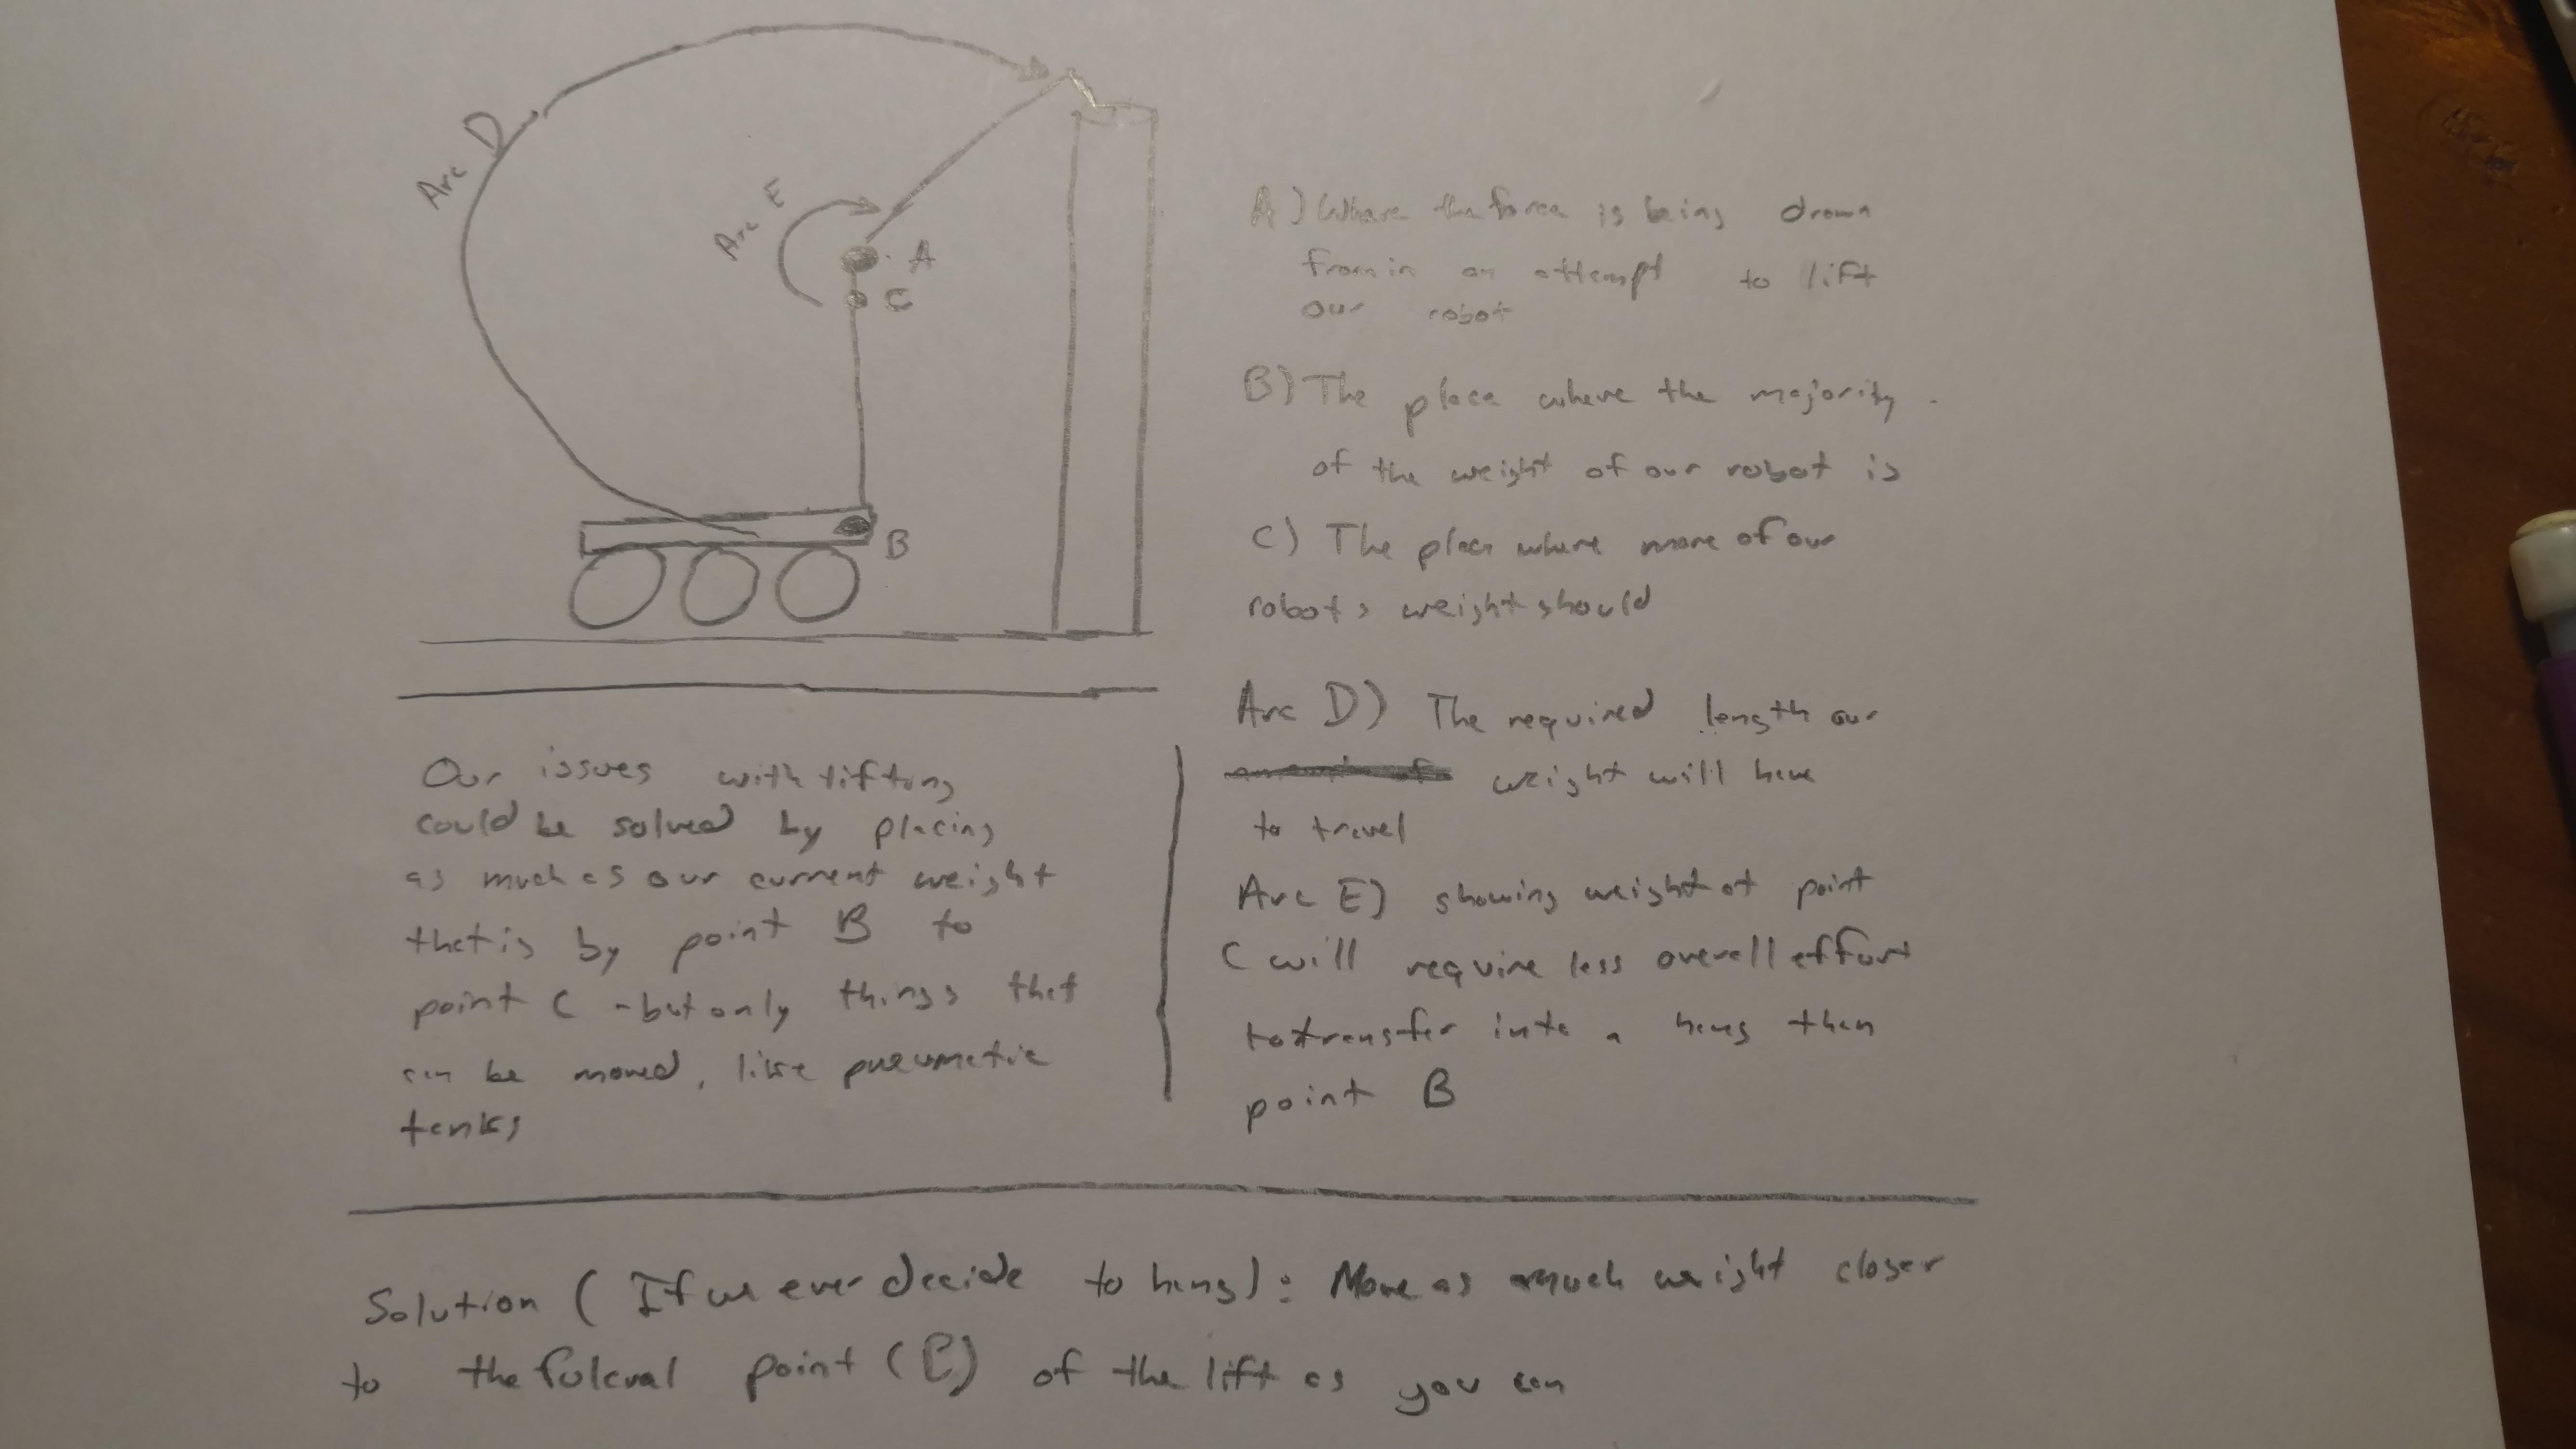 Arc D
Arc E
A
C
B
A) Where the force is being drawn
from in an attempt to lift
our robot
B) The place where the majority
of the weight of our robot is
C) The place where more of our
robots weight should
Arc D) The required length our
weight will have
to travel
Arc E) showing weight at point
C will require less overall effort
to transfer into a hang then
point B
Our issues with lifting
could be solved by placing
as much as our current weight
that is by point B to
point C - but only things that
can be moved, like pneumatic
tanks
Solution (If we ever decide to hang): Move as much weight closer
to the fulcral point (C) of the lift as you can